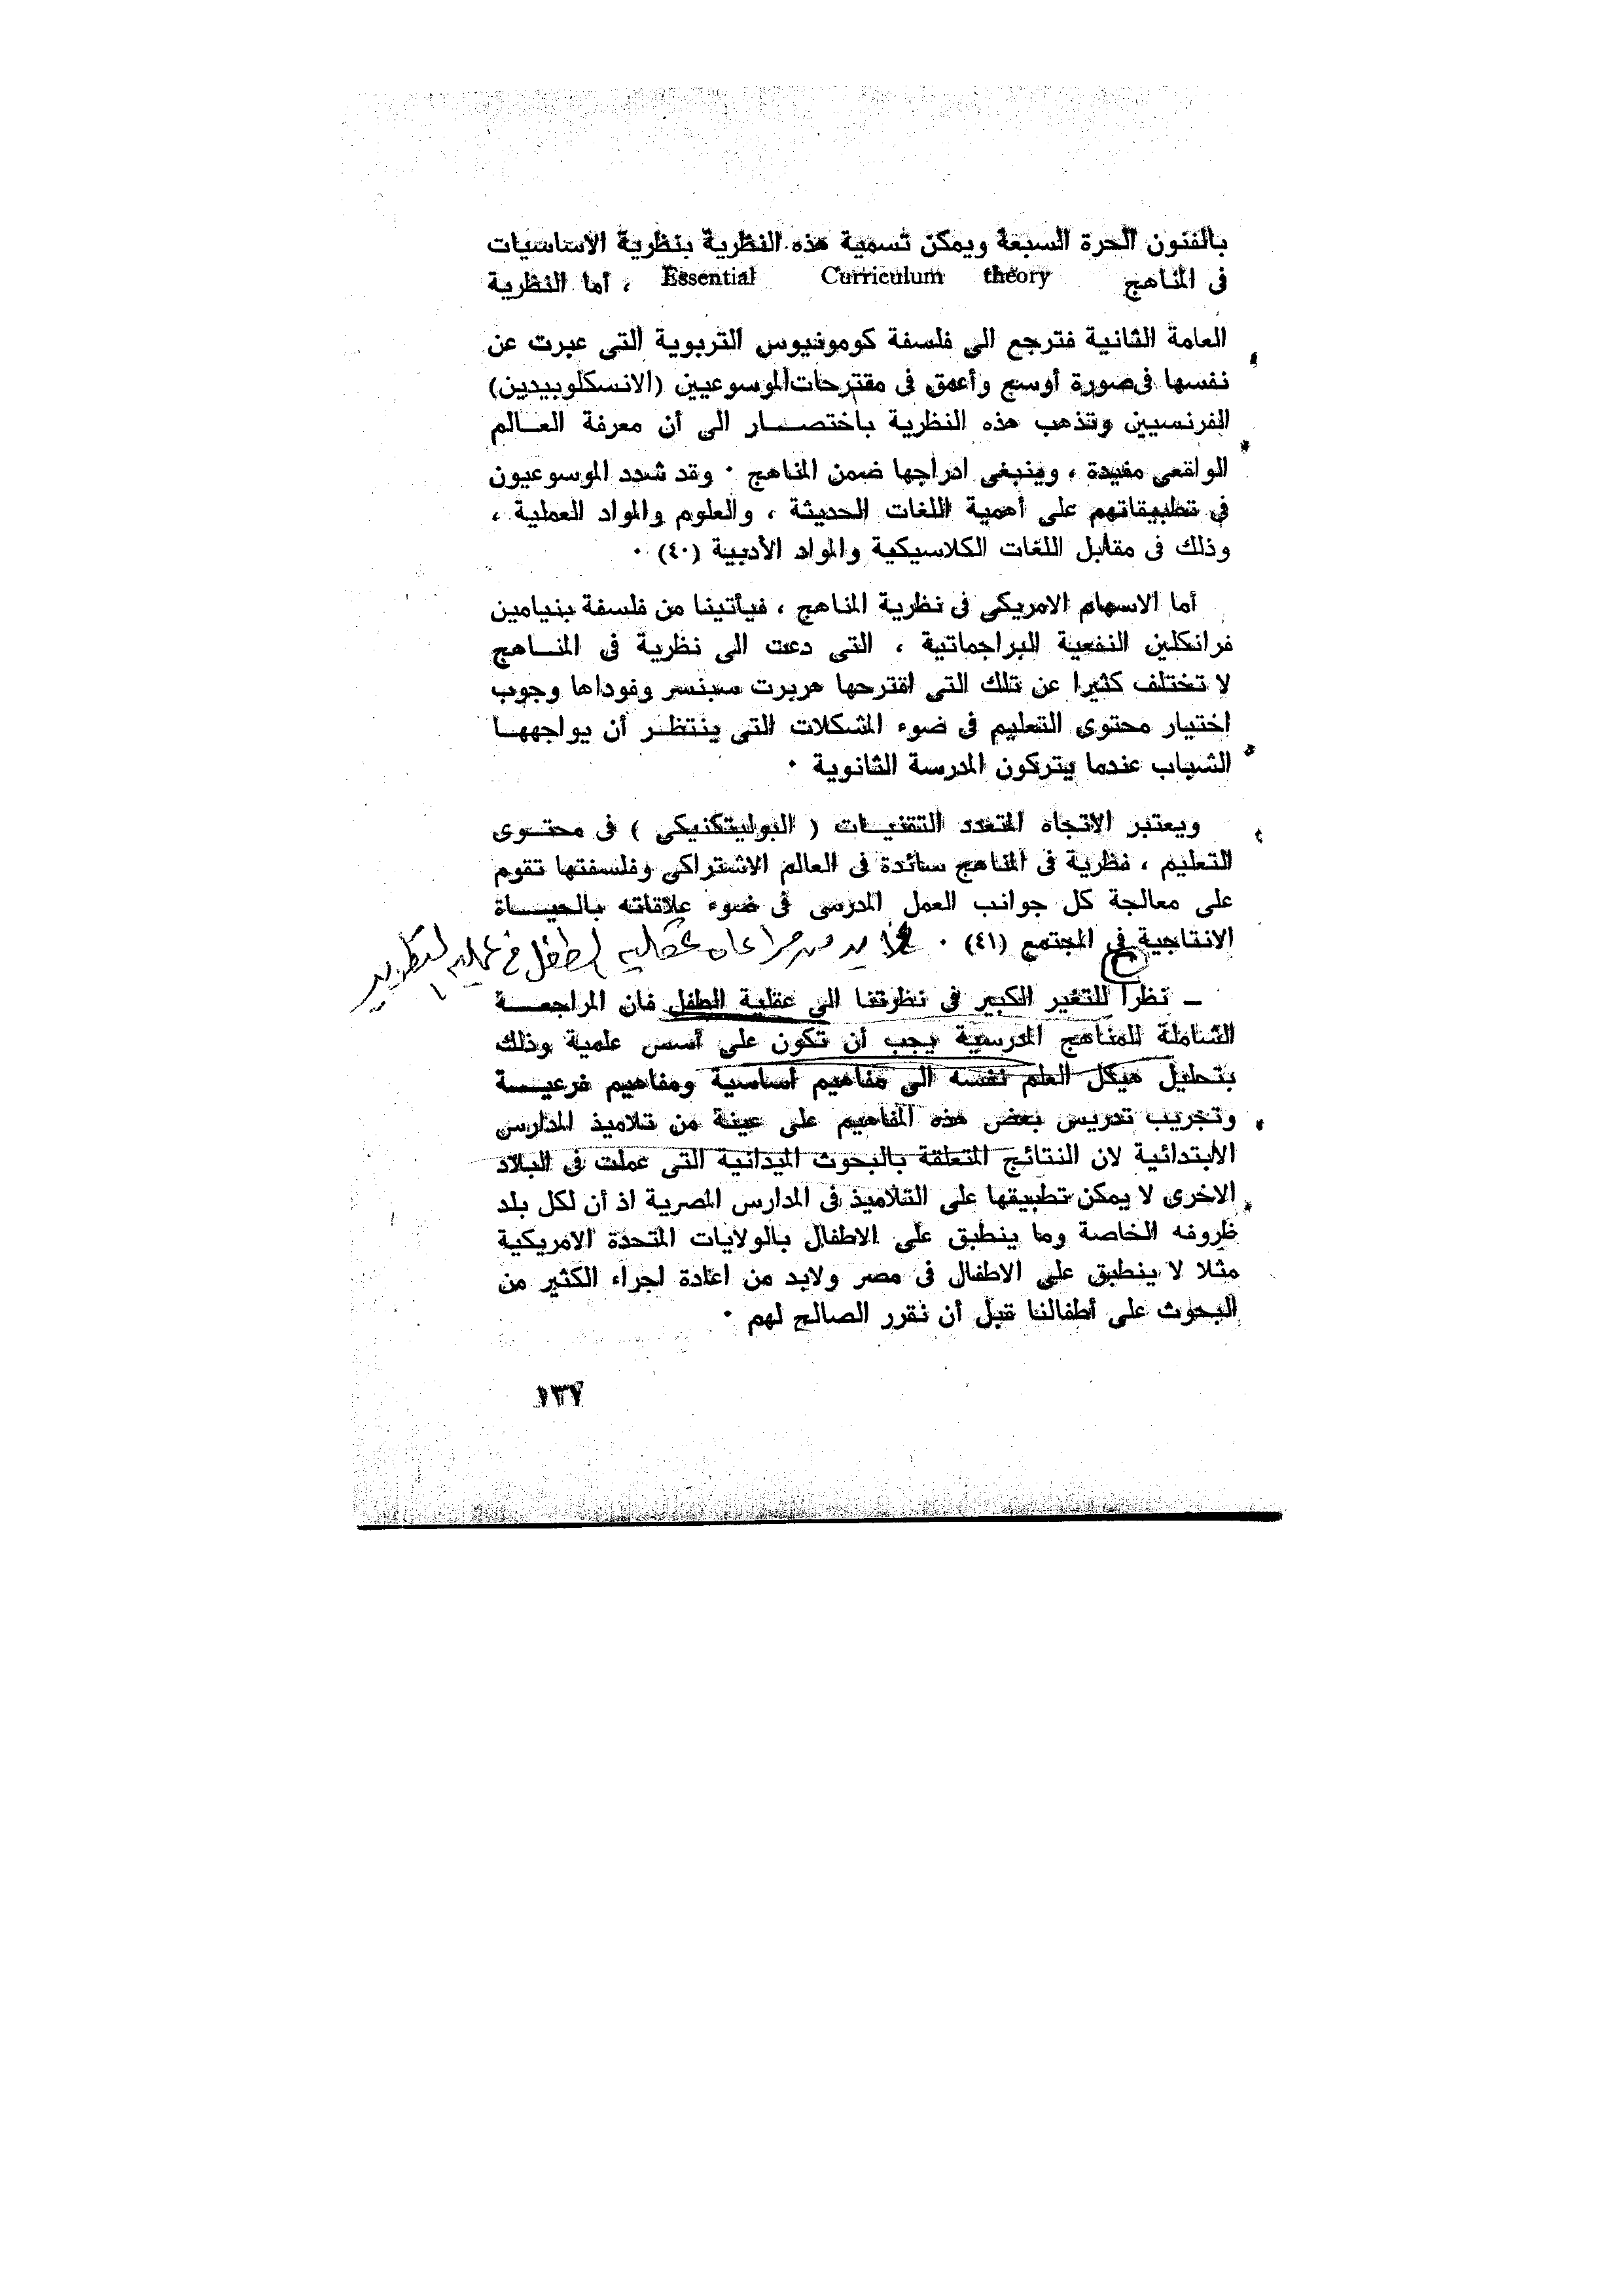 بالفنون الحرة السبعة ويمكن تسمية هذه النظرية بنظرية الاساسيات
فى المناهج Essential Curriculum theory ، أما النظرية
العامة الثانية فترجع الى فلسفة كومونيوس التربوية التى عبرت عن
نفسها فى صورة أوسع وأعمق فى مقترحات الموسوعيين (الانسكلوبيدين)
الفرنسيين وتذهب هذه النظرية باختصار الى أن معرفة العالم
الواقعى مفيدة ، وينبغى ادراجها ضمن المناهج ٠ وقد شدد الموسوعيون
فى تطبيقاتهم على أهمية اللغات الحديثة ، والعلوم والمواد العملية ،
وذلك فى مقابل اللغات الكلاسيكية والمواد الأدبية (٤٠) ٠
أما الاسهام الامريكى فى نظرية المناهج ، فيأتينا من فلسفة بنيامين
فرانكلين النفعية البراجماتية ، التى دعت الى نظرية فى المناهج
لا تختلف كثيرا عن تلك التى اقترحها هربرت سبنسر وفوداها وجوب
اختيار محتوى التعليم فى ضوء المشكلات التى ينتظر أن يواجهها
الشباب عندما يتركون المدرسة الثانوية ٠
ويعتبر الاتجاه المتعدد التقنيات ( البوليتكنيكى ) فى محتوى
التعليم ، نظرية فى المناهج سائدة فى العالم الاشتراكى وفلسفتها تقوم
على معالجة كل جوانب العمل المدرسى فى ضوء علاقاته بالحياة
الانتاجية فى المجتمع (٤١) ٠ لابد من مراعاه عقليه الطفل فى عمليه التطوير
ـ نظرا للتغير الكبير فى نظرتنا الى عقلية الطفل فان المراجعة
الشاملة للمناهج المدرسية يجب أن تكون على أسس علمية وذلك
بتحليل هيكل العلم نفسه الى مفاهيم أساسية ومفاهيم فرعية
وتجريب تدريس بعض هذه المفاهيم على عينة من تلاميذ المدارس
الابتدائية لان النتائج المتعلقة بالبحوث الميدانية التى عملت فى البلاد
الاخرى لا يمكن تطبيقها على التلاميذ فى المدارس المصرية اذ أن لكل بلد
ظروفه الخاصة وما ينطبق على الاطفال بالولايات المتحدة الامريكية
مثلا لا ينطبق على الاطفال فى مصر ولابد من اعادة اجراء الكثير من
البحوث على أطفالنا قبل أن نقرر الصالح لهم ٠